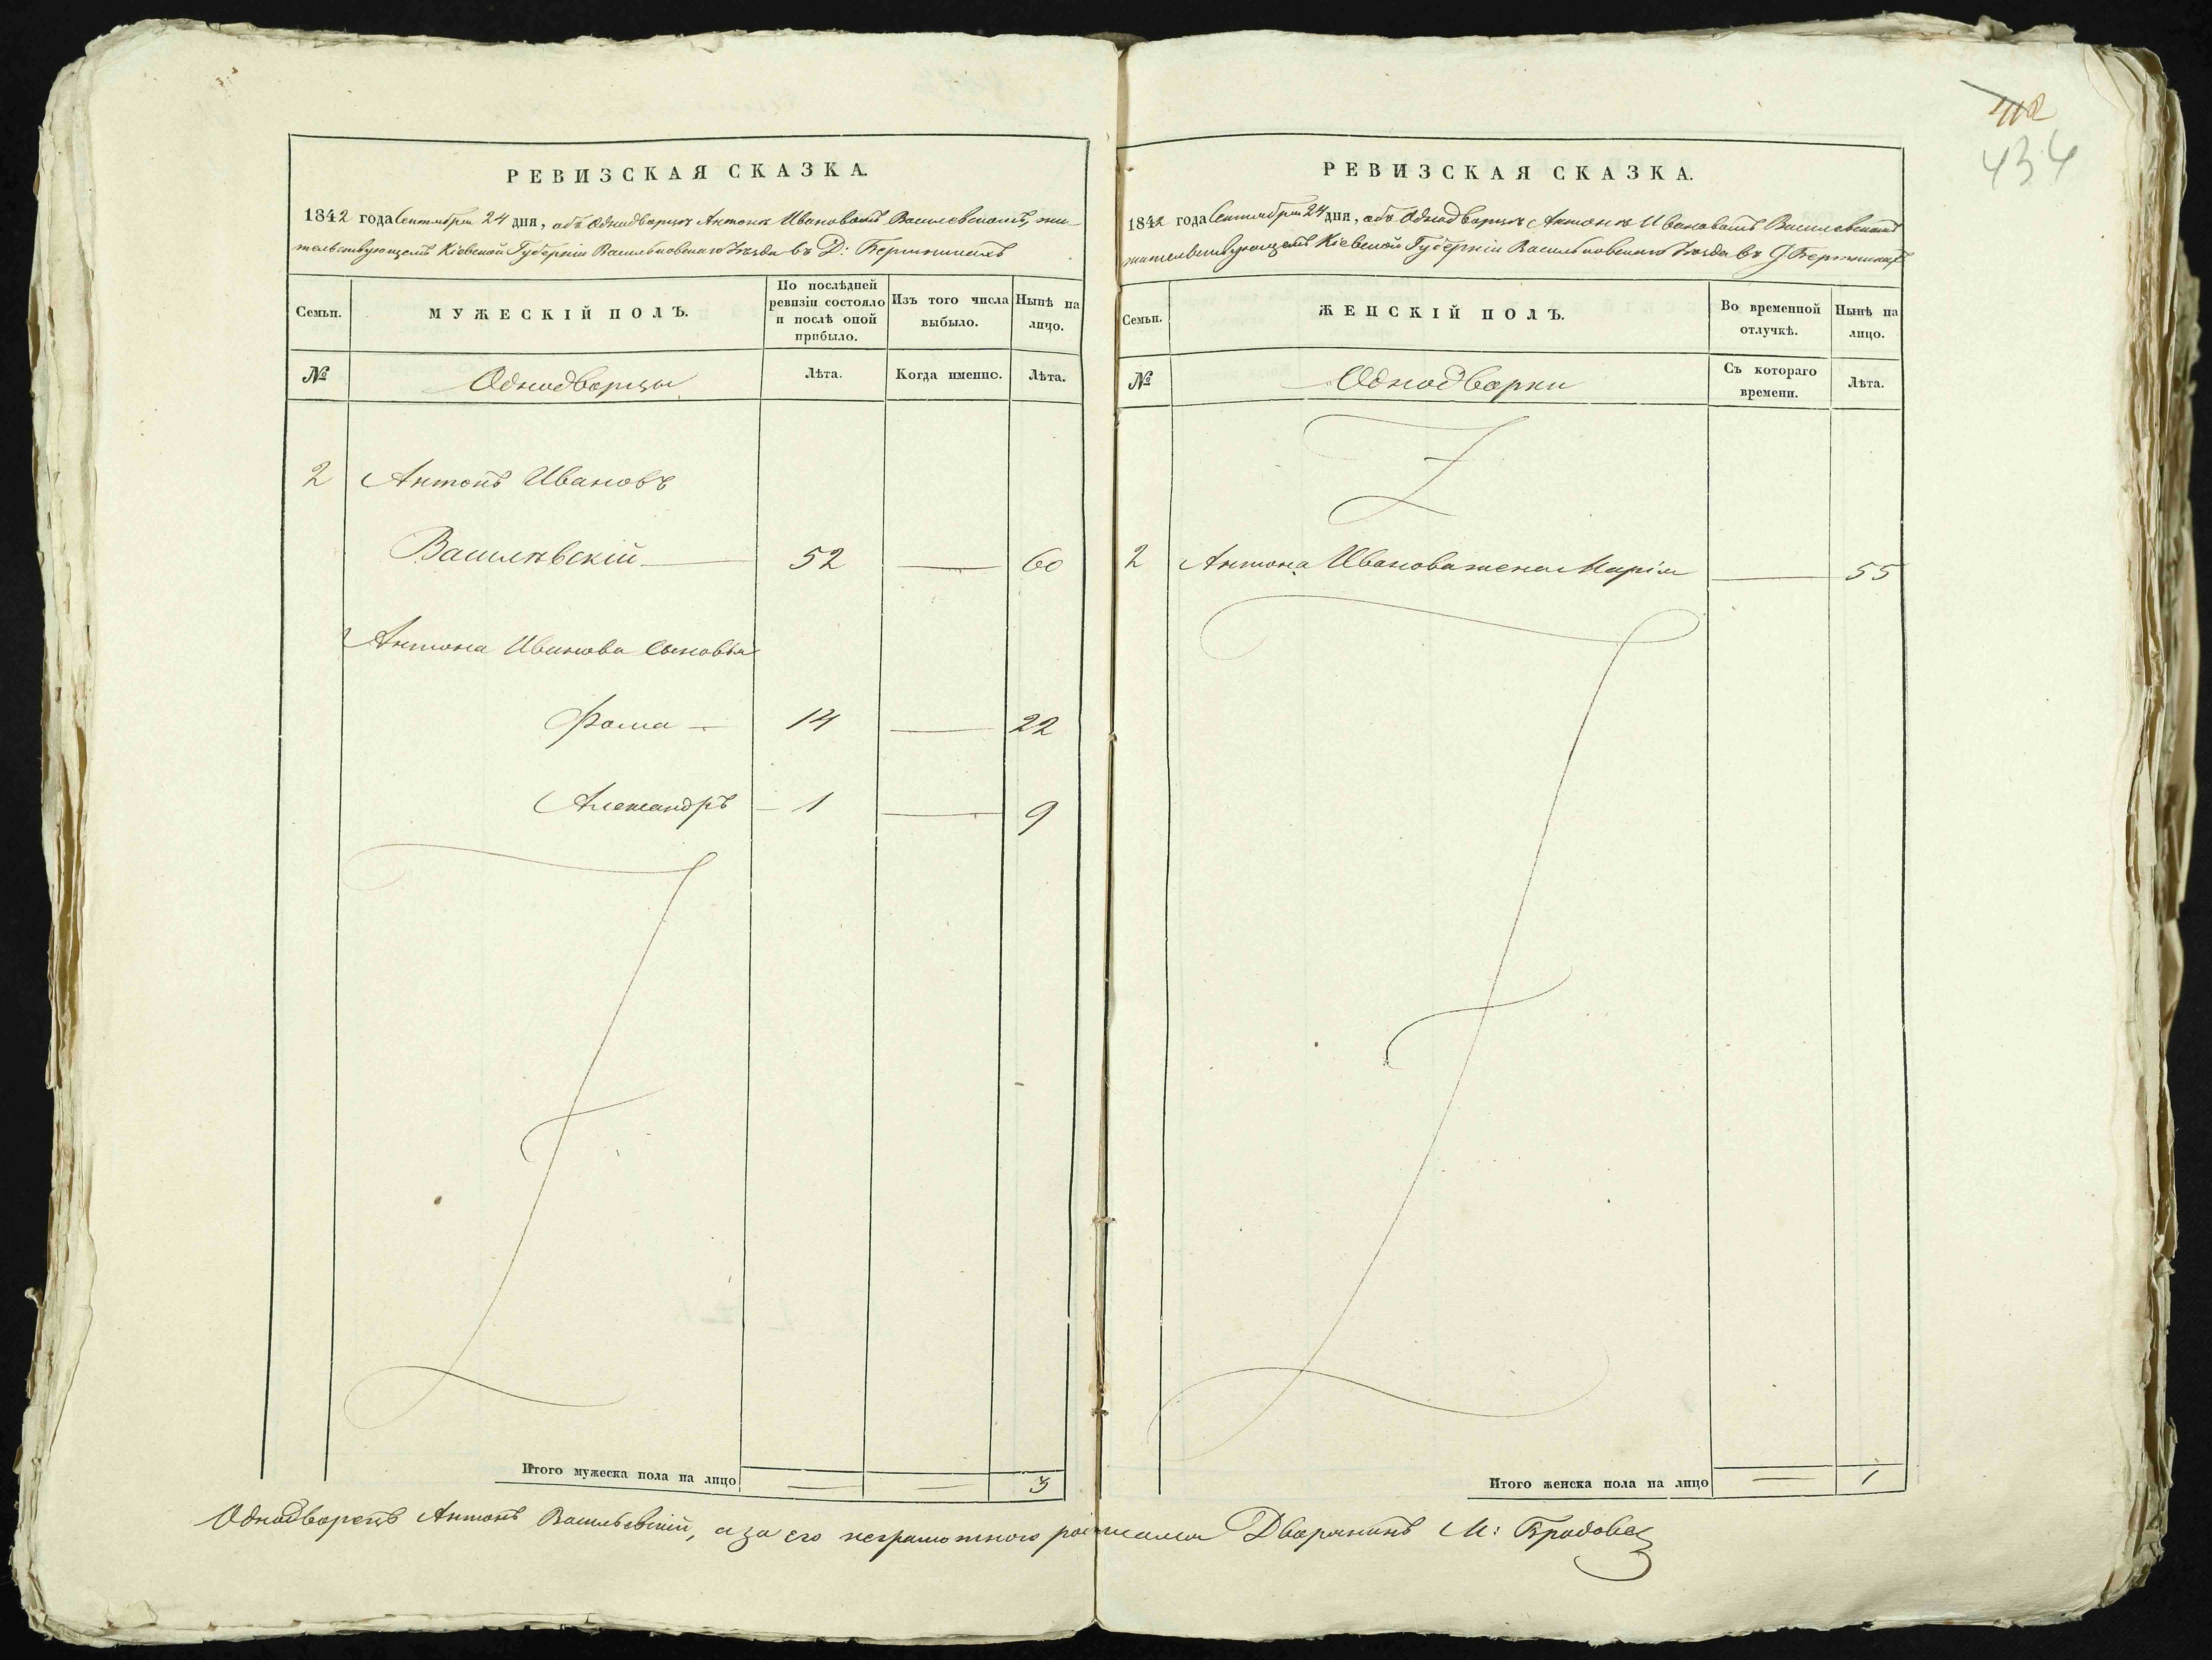 РЕВИЗСКАЯ СКАЗКА.
1842 года Сентября 24 дня, объ Однодворцѣ Антонѣ Ивановомъ Василевскомъ, жи-
тельствующемъ Кіевской Губерніи Васильковскаго Уѣзда въ Д:
Семьи.
МУЖЕСКІЙ ПОЛЪ.
По послѣдней ревизіи состояло и послѣ оной прибыло.
Изъ того числа выбыло.
Нынѣ на лицо.
№
Однодворцы
Лѣта.
Когда именно.
Лѣта.
2 Антонъ Ивановъ
Василѣвскій — 52 — 60
Антона Иванова сыновья
Фома — 14 — 22
Александръ — 1 — 9
Итого мужеска пола на лицо = = 3
412
434
РЕВИЗСКАЯ СКАЗКА.
1842 года Сентября 24 дня, объ Однодворцѣ Антонѣ Ивановомъ Василевскомъ
жительствующемъ Кіевской Губерніи Васильковскаго Уѣзда въ Д
Семьи.
ЖЕНСКІЙ ПОЛЪ.
Во временной отлучкѣ.
Нынѣ на лицо.
№
Однодворки
Съ котораго времени.
Лѣта.
2 Антона Иванова жена Марія — 55
Итого женска пола на лицо = 1
Однодворецъ Антонъ Васильевскій, а за его неграмотного росписался Дворянинъ М: